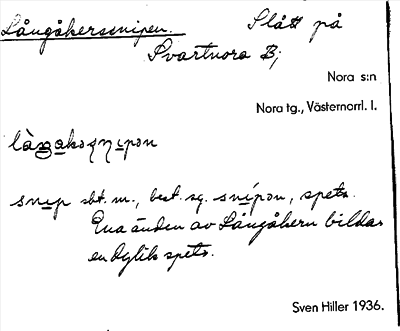 Långåkerssnipen. Slått på
Svartnora B;
Nora s:n
Nora tg., Västernorrl. l.
snip sbt. m., best. sg. snípon, spets.
Ena änden av Långåkern bildar
en dylik spets.
Sven Hiller 1936.